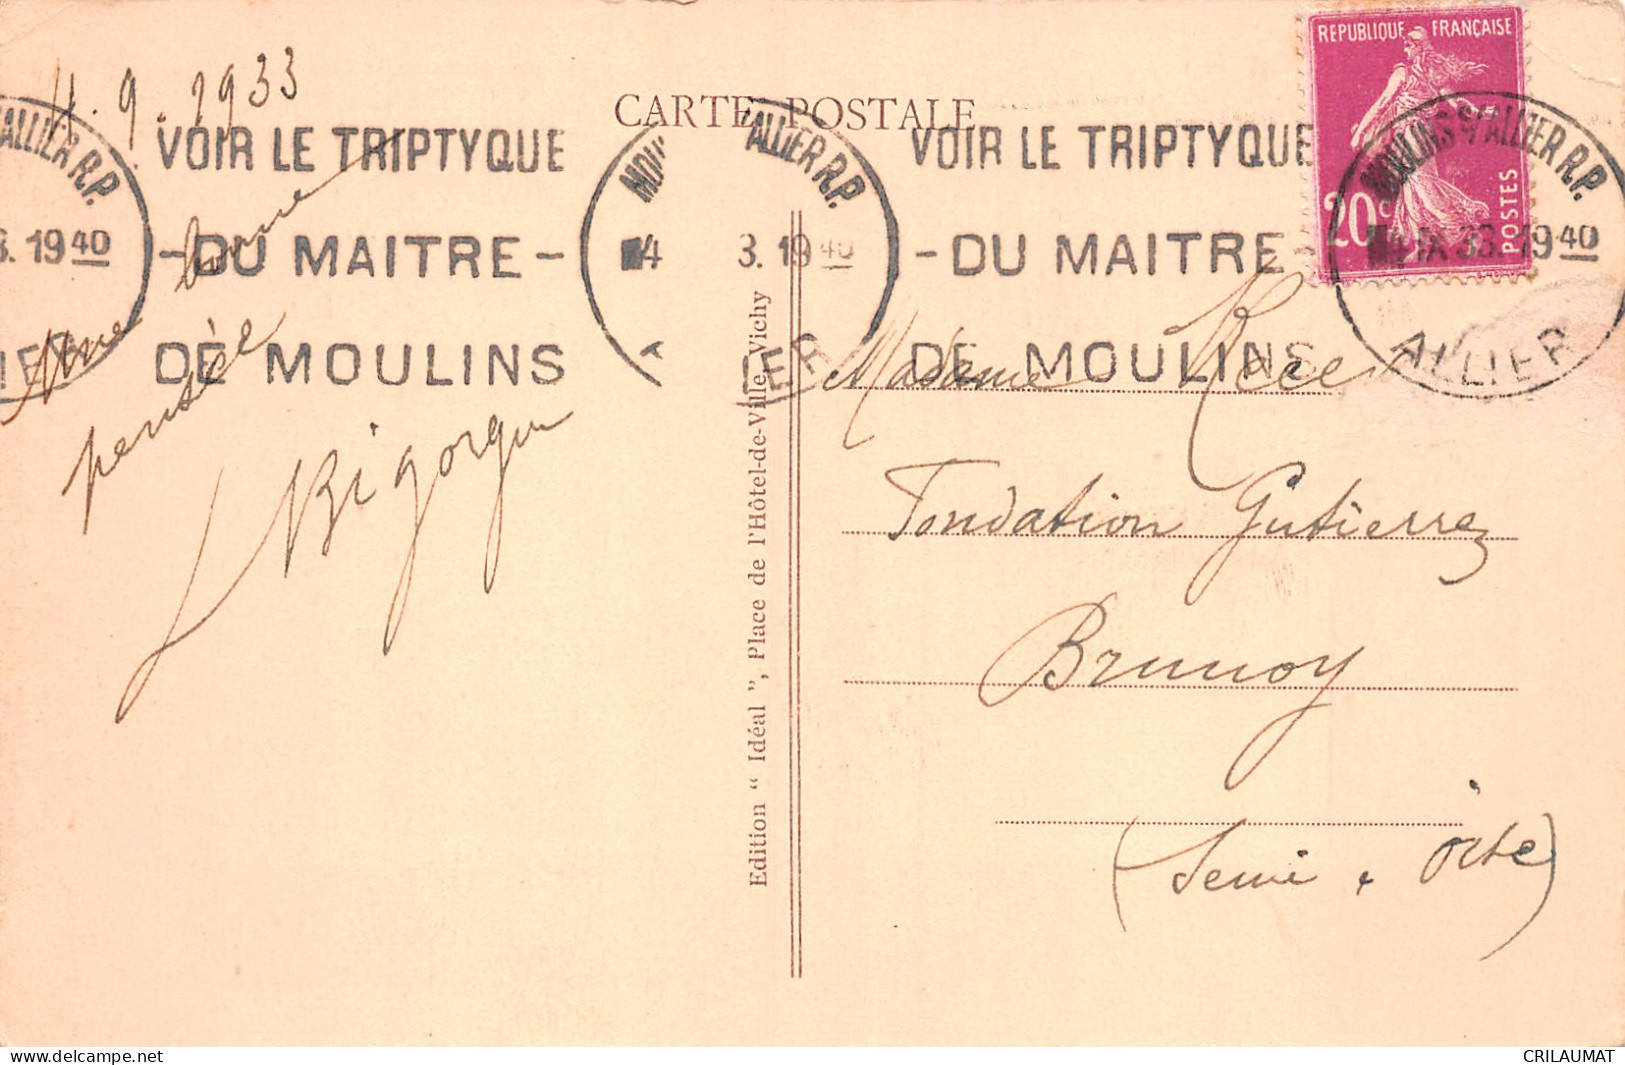 4.9.1933
CARTE POSTALE
REPUBLIQUE FRANÇAISE
20c
POSTES
ALLIER R.P.
3. 19 40
VOIR LE TRIPTYQUE
- DU MAITRE -
DE MOULINS
MOU ALLIER R.P.
4 3. 19 40
VOIR LE TRIPTYQUE
- DU MAITRE -
DE MOULINS
MOULINS S/ ALLIER R.P.
4 IX 33. 19 40
ALLIER
Une bonne
pensée
Bigorgn
Edition “ Idéal ”, Place de l'Hôtel-de-Ville, Vichy
Madame
Fondation Gutierrez
Brunoy
(Seine & Oise)
www.delcampe.net
CRILAUMAT